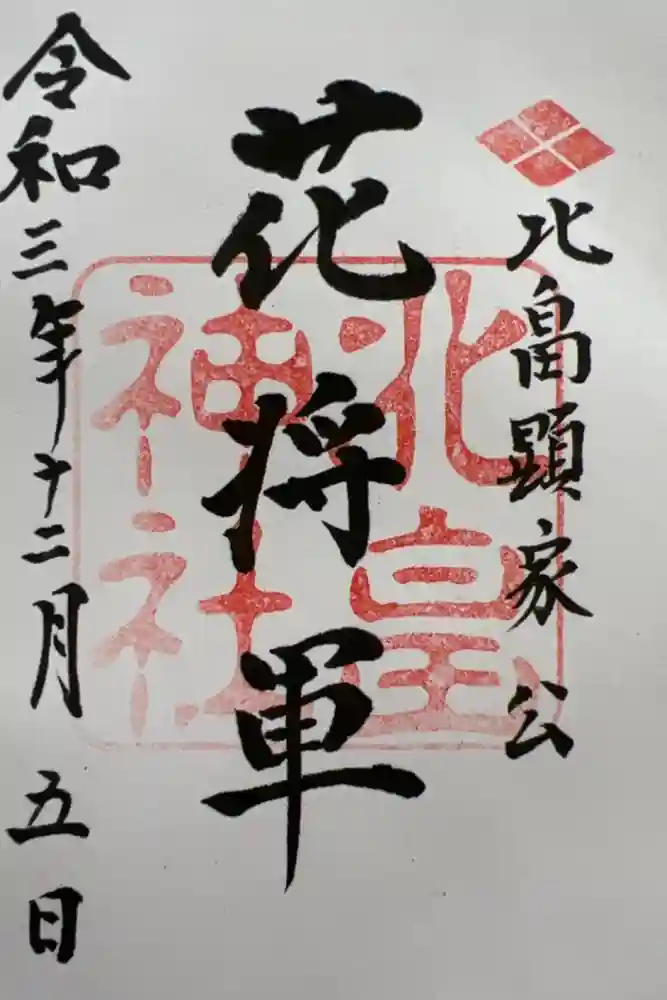 北畠顕家公
花将軍
北皇
神社
令和三年十二月五日